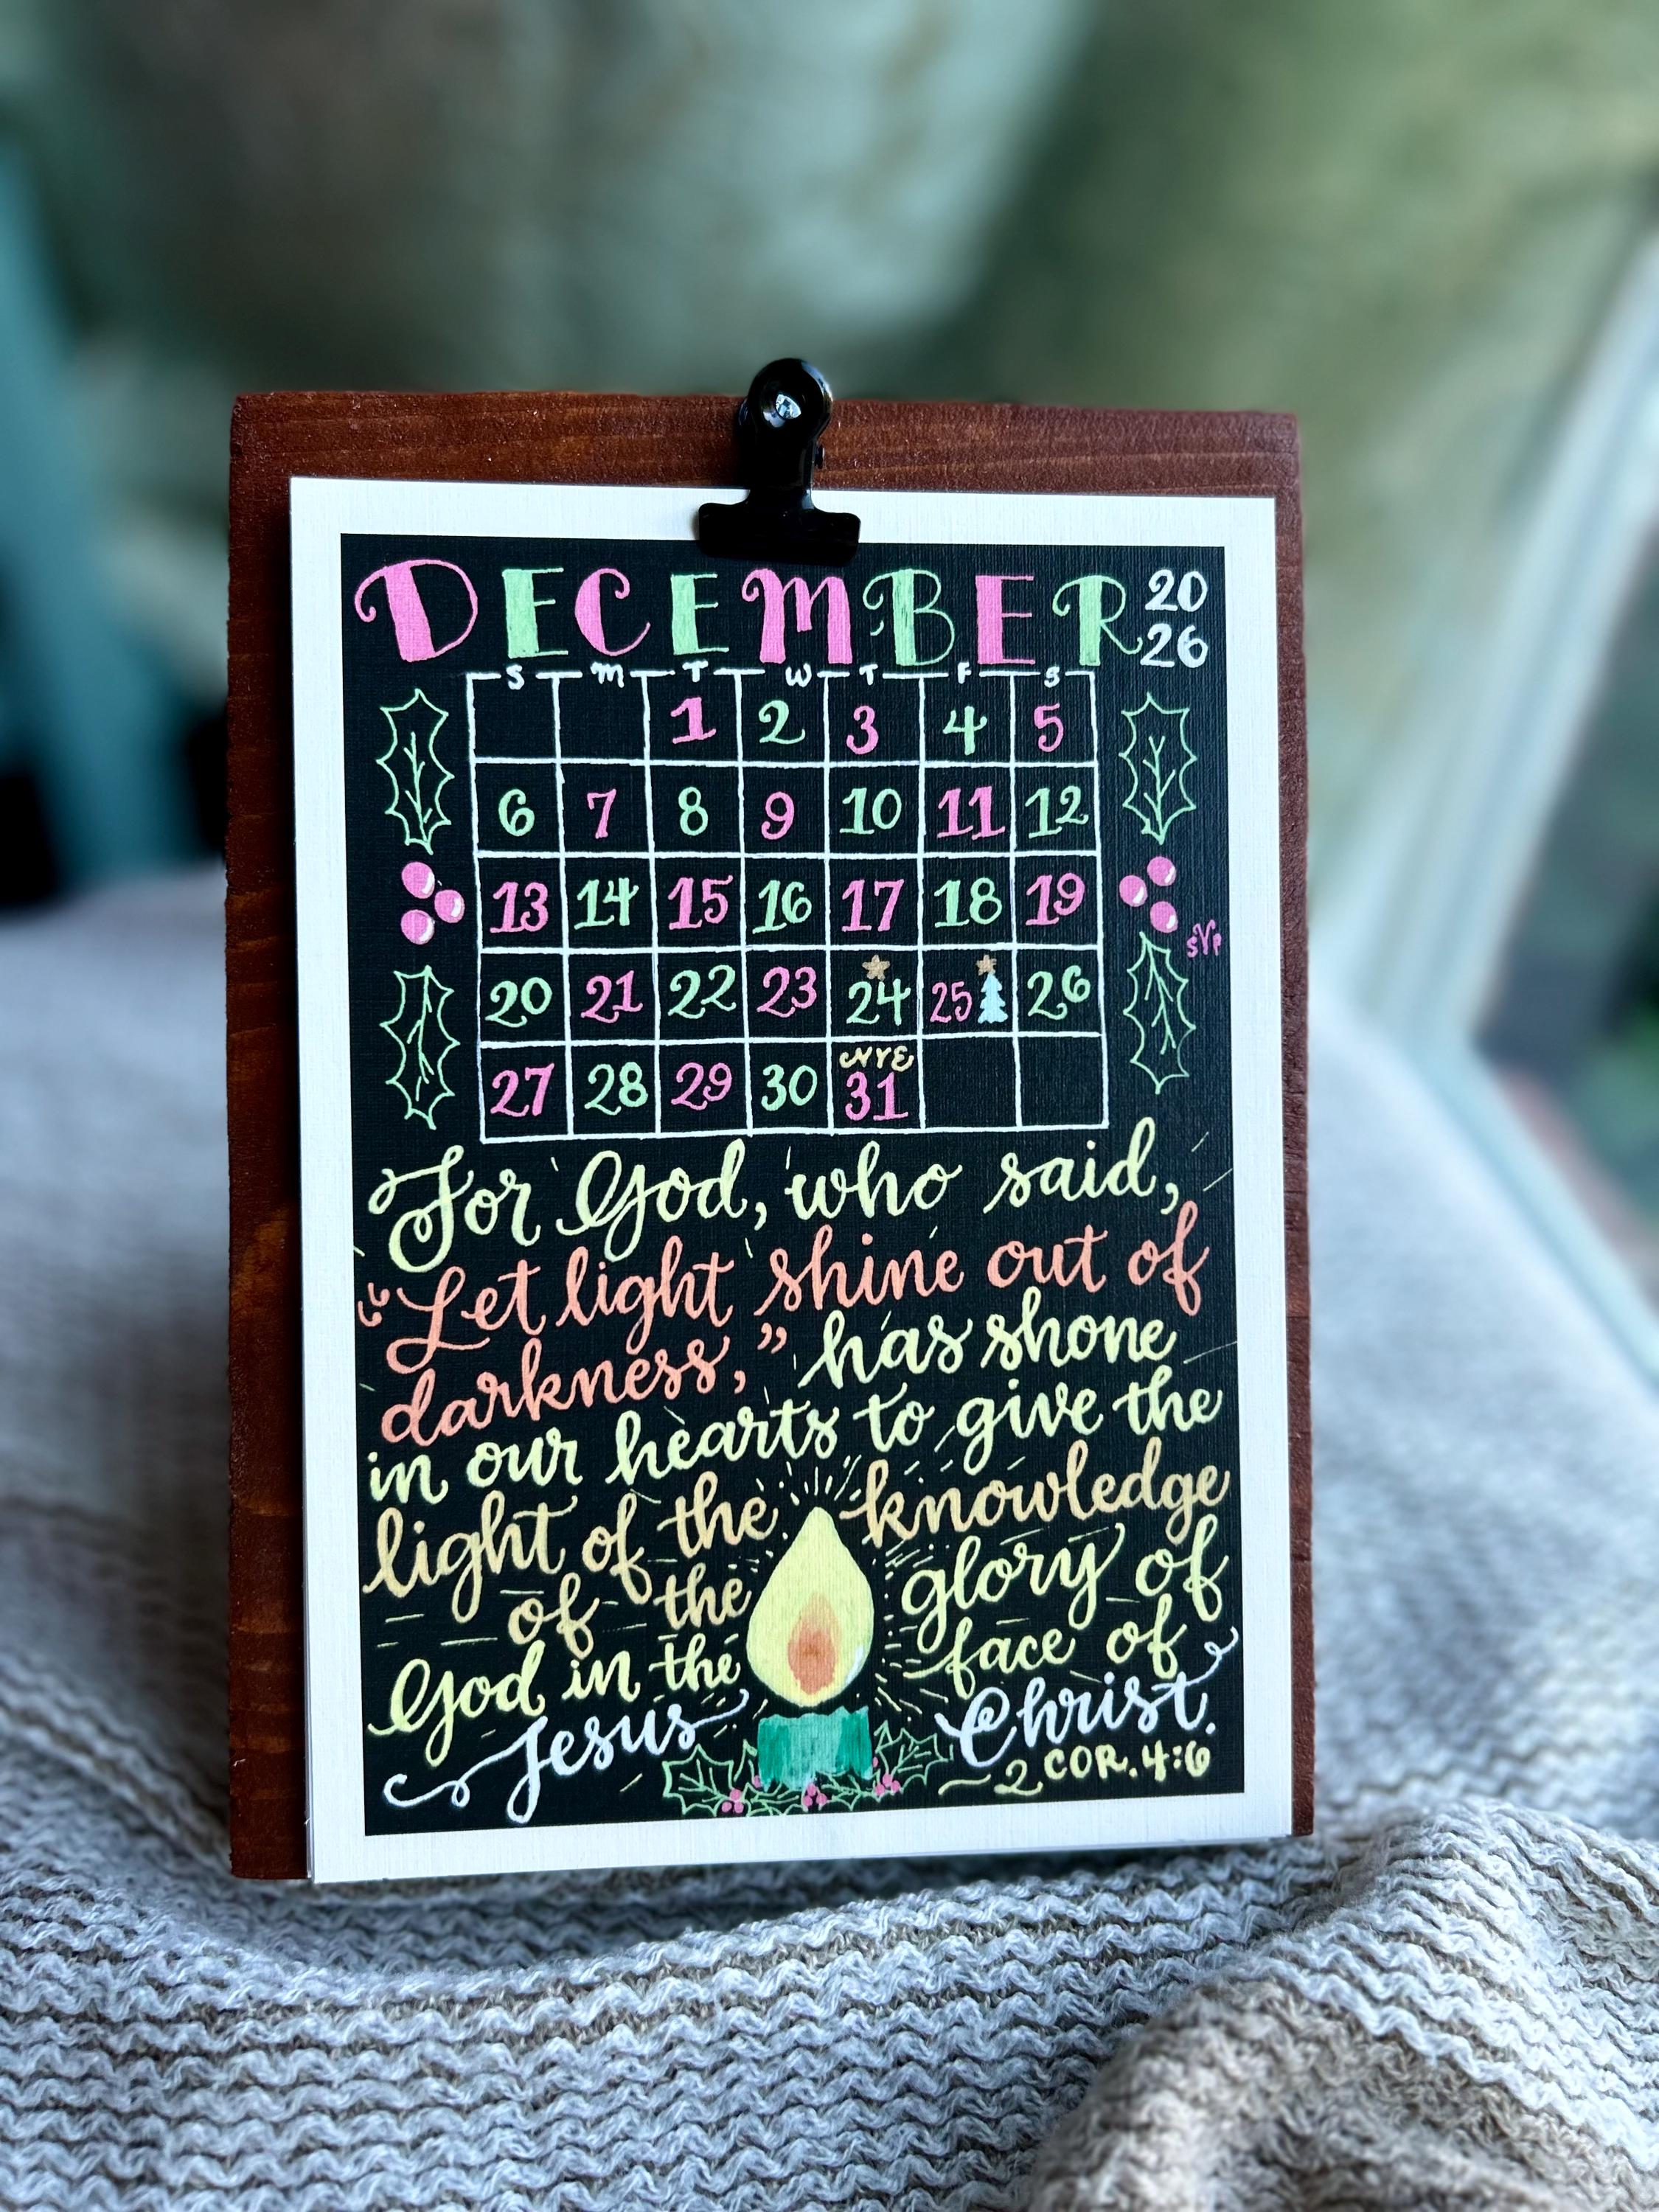 DECEMBER 20 26
S M T W T F S
1 2 3 4 5
6 7 8 9 10 11 12
13 14 15 16 17 18 19
SVP
20 21 22 23 24 25 26
NYE
27 28 29 30 31
For God, who said,
"Let light shine out of
darkness," has shone
in our hearts to give the
light of the knowledge
of the glory of
God in the face of
Jesus Christ.
2 COR. 4:6